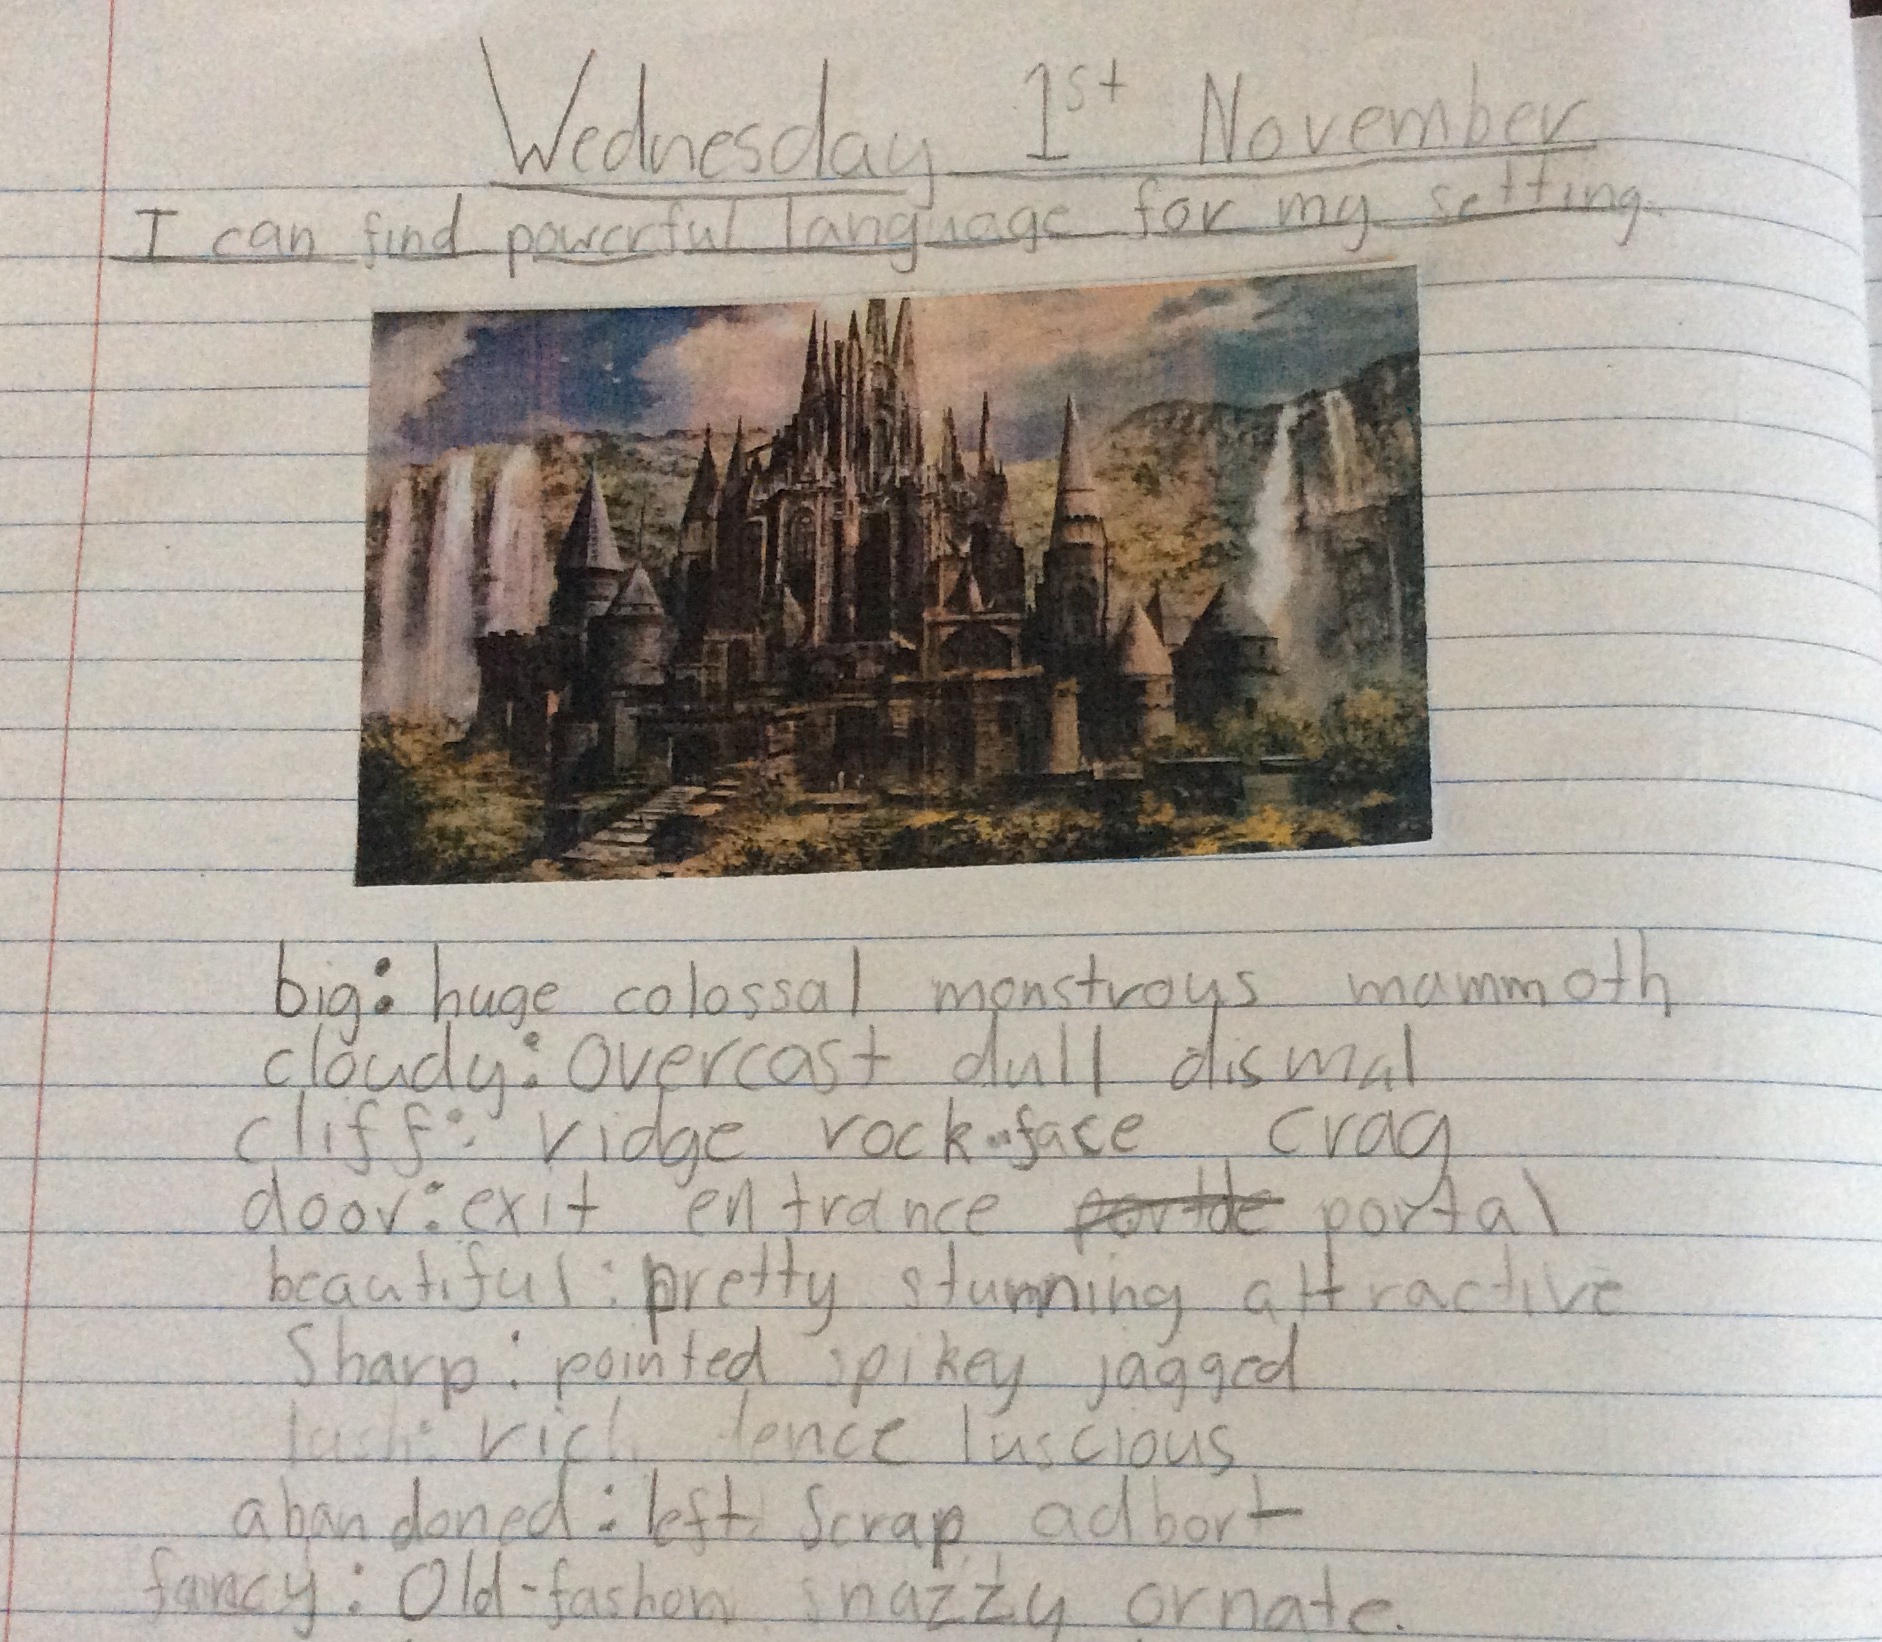 Wednesday 1st November
I can find powerful language for my setting.
big: huge colossal monstrous mammoth
cloudy: Overcast dull dismal
cliff: ridge rock-face crag
door: exit entrance portal
beautiful: pretty stunning attractive
Sharp: pointed spikey jagged
lush: rich dence luscious
abandoned: left Scrap adbort
fancy: Old-fashon snazzy ornate.